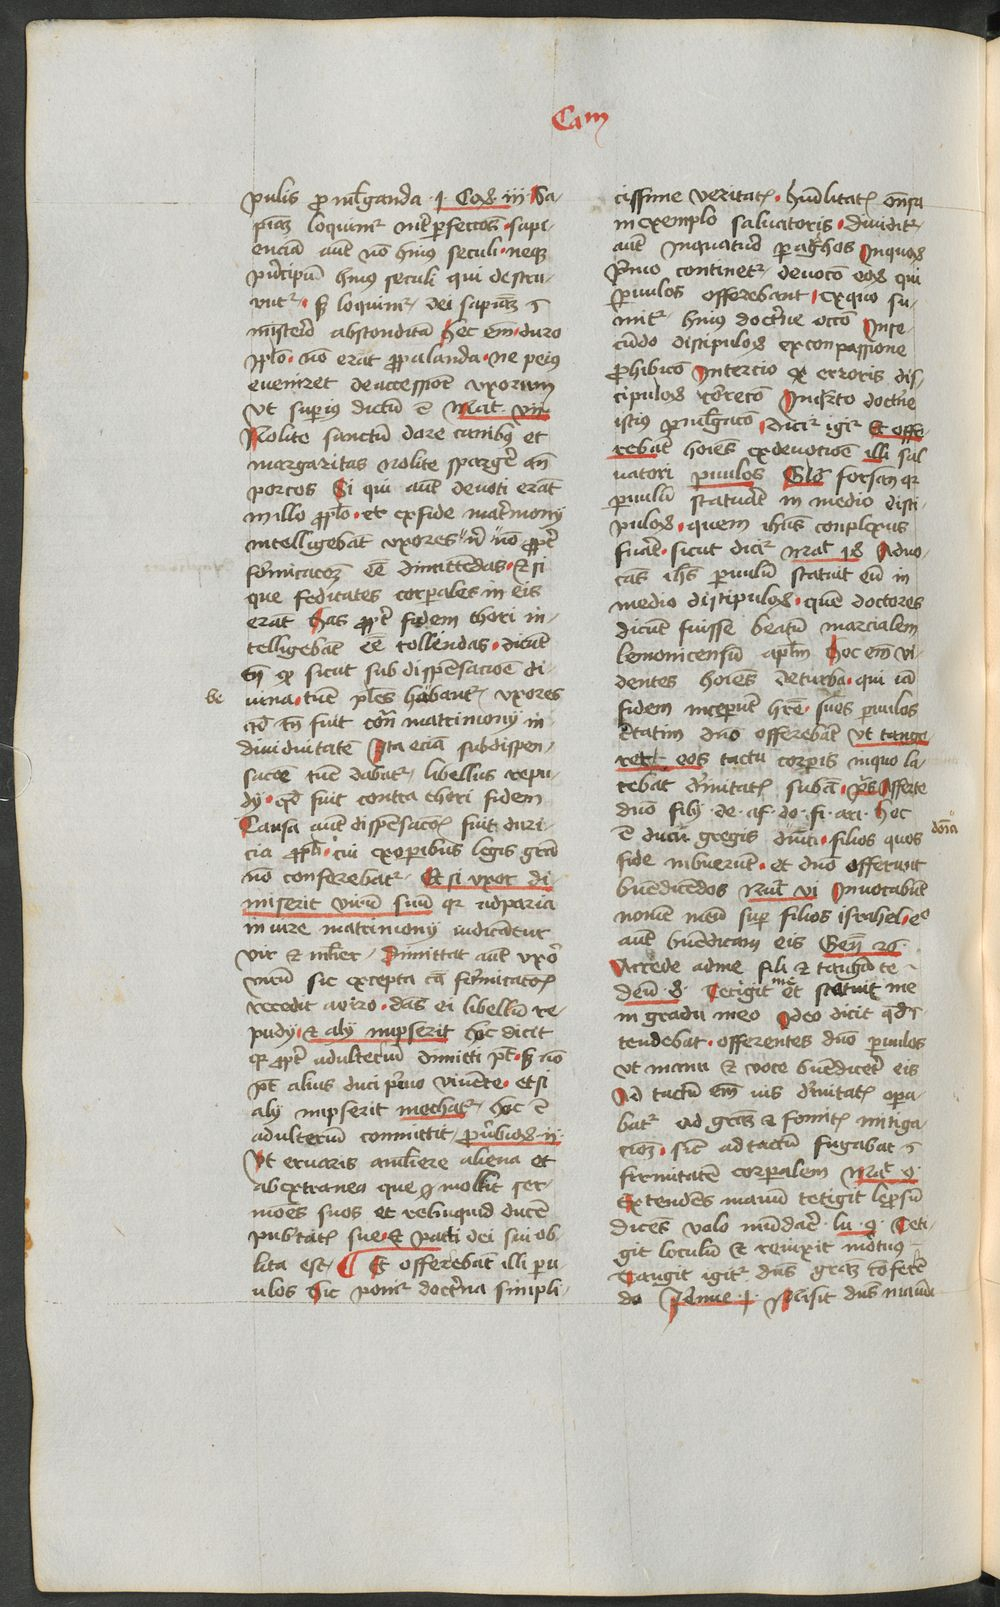 Cam
pulis p mlganda · j Coꝝ iij Sa-
piaꝫ loquimꝰ int̄ perfectos · sapi-
enciā aut̄ nō huiꝰ seculi · neqꝫ
pͥncipū huiꝰ seculi qui destru-
unt̉ · sꝫ loquimꝰ dei sapiaꝫ ī
misterio absconditā hec em̄ duro
pplo · nō erāt ppalanda · ne peiꝰ
eveniret de accessione uxorum
vt supiꝰ dictū ē Mat · vii
Nolite sanctū dare canibꝰ et
margaritas nolite spargē an̄
porcos Si qui aut̄ devoti erāt
in illo pplo · et ex fide mat̄mony
intelligebāt uxores nō ppt̄
fornicacōeꝫ eē dimittēdas · et si
que feditates corpales in eis
erāt has ppt̄ fidem thori in-
telligebāt eē tollendas · dicūt
em̄ ꝙ sicut sub dispensacioē di-
be uina · tūc pr̄es habant uxores
qd̄ tn̄ fuit cont̄ matrimony in
dividuitatē Ita eciā sub dispen-
sacōe tūc dabat̉ libellus repu-
dy · qd̄ fuit contra thori fidem
Causa aut̄ dispēsacōis fuit duri-
cia ppli · cui ex operibus legis grā
nō conferebat̉ Et si uxor di-
miserit virū suū qꝫ ad paria
in iure matrimony iudicātur
vir et mlier / Dimittat aut̄ uxor
virū sic excepta cā fornicacōis
recedit a viro · dās ei libellū re-
pudy · et aly nupserit hoc dicit
qꝫ ppt̄ adulteriū dimitti pt̄ · sꝫ nō
pt̄ alius duci pͥmo vivente · et si
aly nupserit mechat̉ hoc ē
adulteriū committit · pͮbioꝝ ij
Vt eruaris a mliere aliena et
ab extranea que mollit ser-
mones suos et relinquid ducē
pubtatis sue · et pacti dei sui ob-
lita est · Et offerebāt illi pu-
ulos Sic ponit̉ doctͥna simpli-
cissime veritatis humilitatis ōnsa
in exemplo salvatoris · dividit̉
aut̄ in quatuor paghos In quoꝝ
pͥmo continet̉ devocō eoꝝ qui
pvulos offerebant · ex quo su-
mit̉ huiꝰ doctͥne occō In se-
cundo discipuloꝝ ex conpassione
phibicō In tercio erroris dis-
cipuloꝝ corectō In qrto doctͥne
istiꝰ pmlgacō Dicit̉ igit̉ Et offe-
rebāt hoies ex devotioē illi sal-
vatori pvulos Glo forsan qꝫ
pvulū statuerat in medio disci-
puloꝝ · quem ihūs conplexus
fuāt · sicut dicit̉ Mat 18 Advo-
cās ihs pvulū statuit eū in
medio discipuloꝝ · quē doctores
dicūt fuisse beatū marcialem
lemonicensū aplm hoc em̄ vi-
dentes hoies de turba · qui iā
fidem inceperūt hr̄e · suos pvulos
certatim dno offerebāt vt tange-
ret eos tactu corpis in quo la-
tebat divinitatis subā · ps Afferte
dno filij · de · af · do · fi · ari · hec
ē ductus gregis dn̄ici · filios quos dn̄ica
fide inbuerūt · et dno offerunt
bndicēdos Nu vi Invocabūt
nomē meū sup filios israhel · eo
aut̄ bndicam eis Gen 26 ·
Accede ad me fili et tangā te
deut 8 · Tetigit me et statuit me
in gradu meo Ideo dicit qd̄
tendebat · offerentes dno pvulos
vt manu et voce bndicet̄ eis
Ad tactū em̄ vis divinitatis opa-
bat̉ ad graꝫ et fomitis mitiga-
cioꝫ · sicut ad tactū fugabat ī
firmitatē corpalem Mat 8 ·
Extendēs manū tetigit leprosū
dicēs volo mūdare · lu 9 · Teti-
git loculū et revixit mortuus
Tangit igit̉ dns graꝫ cōferen-
do Jhmie · j · Misit dns manū